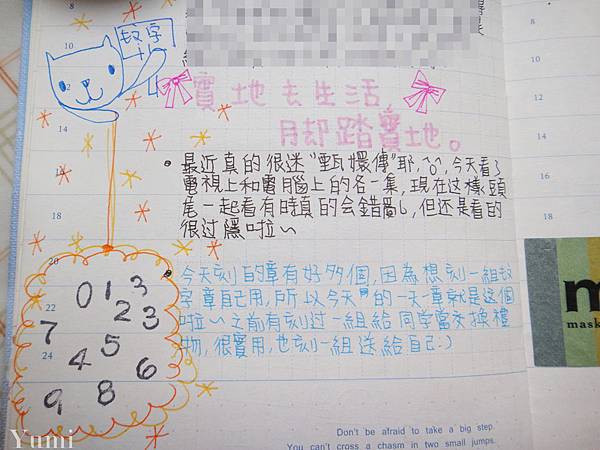 8
10
数字
12
實地去生活,
脚踏實地。
14
最近真的很迷"甄嬛傳"耶,^o^,今天看了
電視上和電腦上的各一集,現在这樣頭
18
尾一起看有時真的会錯亂,但还是看的
很过癮啦~
20
今天刻的章有好多個,因為想刻一組数
字章自己用,所以今天的一天一章就是這個
22
啦~之前有刻过一組給同学當交換禮
24
物,很實用,也刻一組送給自己:)
0 1 3
2 3
7
4 5 6
9 8
Don't be afraid to take a big step.
You can't cross a chasm in two small jumps.
8
18
m
mask
Yumi